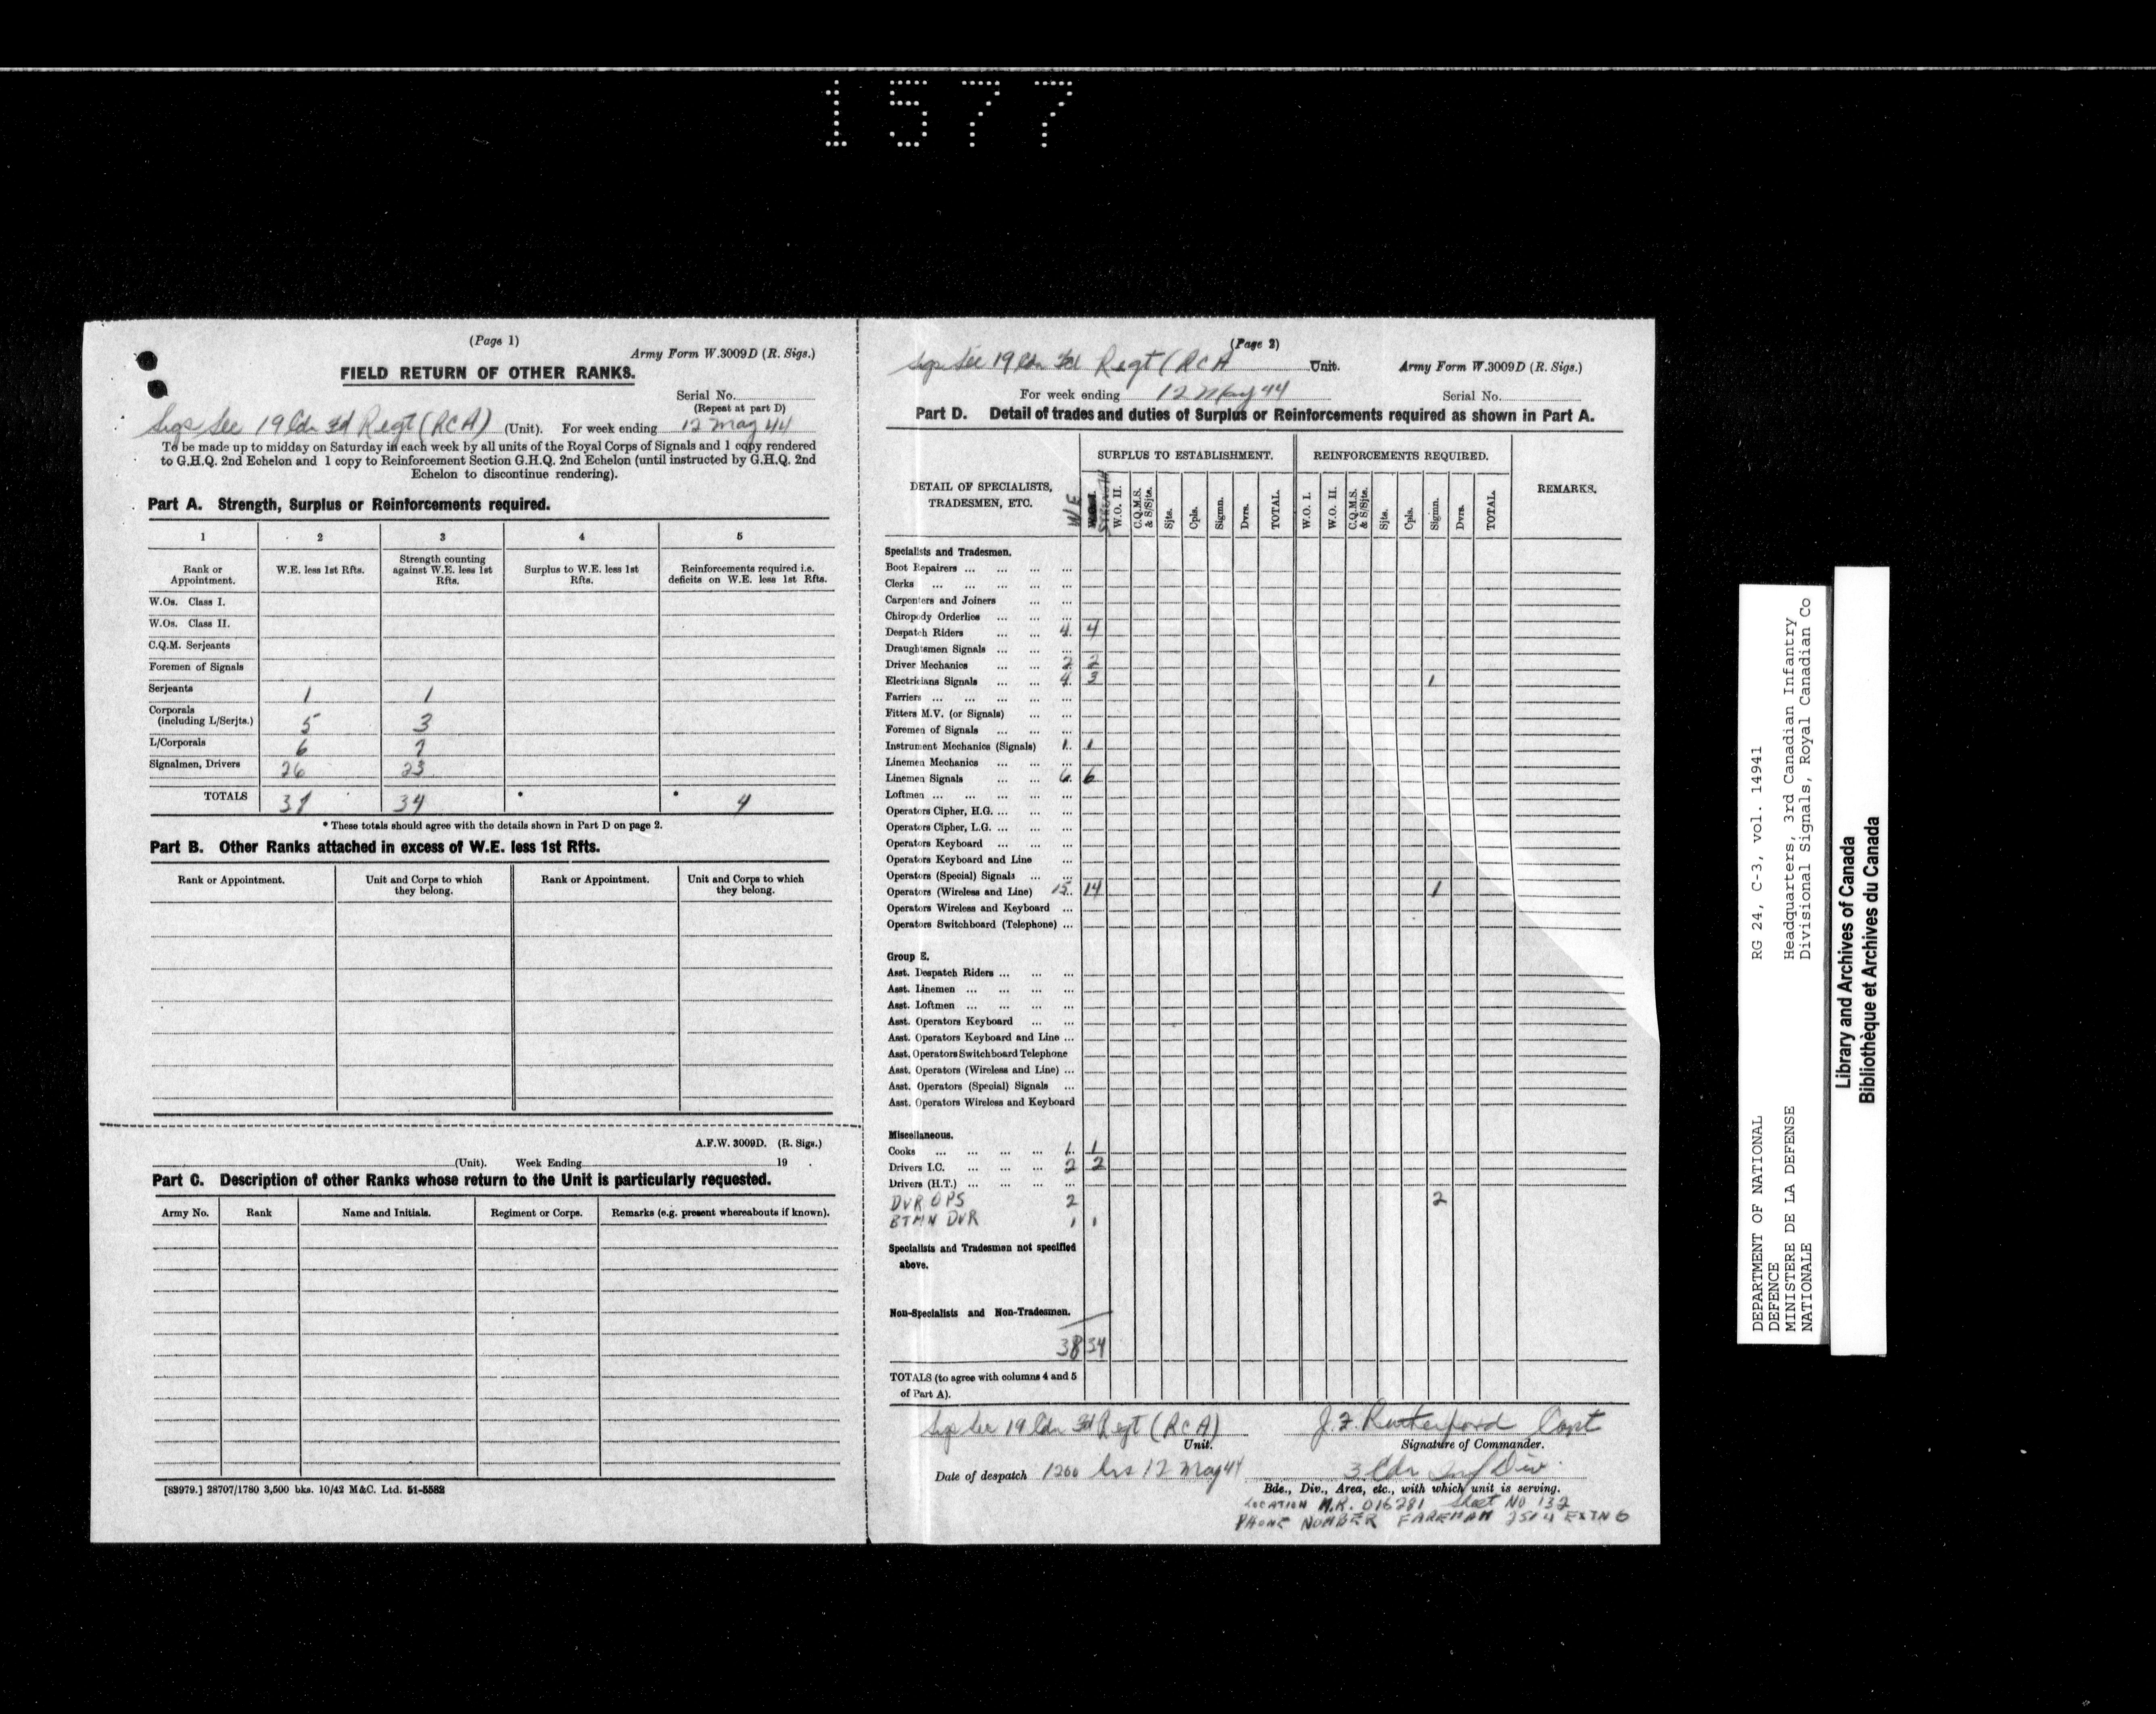 1577
(Page 1)
Army Form W.3009D (R. Sigs.)
FIELD RETURN OF OTHER RANKS.
Serial No.
(Repeat at part D)
Sigs Sec 19 Cdn Fd Regt (RCA) (Unit). For week ending 12 May 44
To be made up to midday on Saturday in each week by all units of the Royal Corps of Signals and 1 copy rendered
to G.H.Q. 2nd Echelon and 1 copy to Reinforcement Section G.H.Q. 2nd Echelon (until instructed by G.H.Q. 2nd
Echelon to discontinue rendering).
Part A. Strength, Surplus or Reinforcements required.
1 2 3 4 5
Rank or Appointment. W.E. less 1st Rfts. Strength counting against W.E. less 1st Rfts. Surplus to W.E. less 1st Rfts. Reinforcements required i.e. deficits on W.E. less 1st Rfts.
W.Os. Class I.
W.Os. Class II.
C.Q.M. Serjeants
Foremen of Signals
Serjeants 1 1
Corporals (including L/Serjts.) 5 3
L/Corporals 6 7
Signalmen, Drivers 26 23
TOTALS 34 * * 4
* These totals should agree with the details shown in Part D on page 2.
Part B. Other Ranks attached in excess of W.E. less 1st Rfts.
Rank or Appointment. Unit and Corps to which they belong. Rank or Appointment. Unit and Corps to which they belong.
A.F.W. 3009D. (R. Sigs.)
(Unit). Week Ending 19 .
Part C. Description of other Ranks whose return to the Unit is particularly requested.
Army No. Rank Name and Initials. Regiment or Corps. Remarks (e.g. present whereabouts if known).
[83979.] 28707/1780 3,500 bks. 10/42 M&C. Ltd. 51-5582
(Page 2)
Sigs Sec 19 Cdn Fd Regt (RCA Unit. Army Form W.3009D (R. Sigs.)
For week ending 12 May 44 Serial No.
Part D. Detail of trades and duties of Surplus or Reinforcements required as shown in Part A.
DETAIL OF SPECIALISTS, TRADESMEN, ETC. SURPLUS TO ESTABLISHMENT. REINFORCEMENTS REQUIRED. REMARKS.
W E STRENGTH W.O. II. C.Q.M.S. & S/Sjts. Sjts. Cpls. Sigmn. Dvrs. TOTAL. W.O. I. W.O. II. C.Q.M.S. & S/Sjts. Sjts. Cpls. Sigmn. Dvrs. TOTAL.
Specialists and Tradesmen.
Boot Repairers ... ... ... ...
Clerks ... ... ... ... ...
Carpenters and Joiners ... ...
Chiropody Orderlies ... ... ...
Despatch Riders ... ... 4 4
Draughtsmen Signals ... ... ...
Driver Mechanics ... ... 2 2
Electricians Signals ... ... 4 3 1
Farriers ... ... ... ... ...
Fitters M.V. (or Signals) ... ...
Foremen of Signals ... ... ...
Instrument Mechanics (Signals) 1 1
Linemen Mechanics ... ... ...
Linemen Signals ... ... 6 6
Loftmen ... ... ... ... ...
Operators Cipher, H.G. ... ... ...
Operators Cipher, L.G. ... ... ...
Operators Keyboard ... ... ...
Operators Keyboard and Line ...
Operators (Special) Signals ... ...
Operators (Wireless and Line) 15 14 1
Operators Wireless and Keyboard ...
Operators Switchboard (Telephone) ...
Group E.
Asst. Despatch Riders ... ... ...
Asst. Linemen ... ... ... ...
Asst. Loftmen ... ... ... ...
Asst. Operators Keyboard ... ...
Asst. Operators Keyboard and Line ...
Asst. Operators Switchboard Telephone
Asst. Operators (Wireless and Line) ...
Asst. Operators (Special) Signals ...
Asst. Operators Wireless and Keyboard
Miscellaneous.
Cooks ... ... ... ... 1 1
Drivers I.C. ... ... ... 2 2
Drivers (H.T.) ... ... ... ...
DVR OPS 2 2
BTMN DVR 1 1
Specialists and Tradesmen not specified
above.
Non-Specialists and Non-Tradesmen.
38 34
TOTALS (to agree with columns 4 and 5
of Part A).
Sigs Sec 19 Cdn Fd Regt (RCA) J.F. Rutherford Capt
Unit. Signature of Commander.
Date of despatch 1200 hrs 12 May 44 3 Cdn Inf Div.
Bde., Div., Area, etc., with which unit is serving.
LOCATION M.R. 016281 Sheet NO 132
PHONE NUMBER FAREHAM 2514 EXTN 6
DEPARTMENT OF NATIONAL RG 24, C-3, vol. 14941
DEFENCE
MINISTERE DE LA DEFENSE Headquarters, 3rd Canadian Infantry
NATIONALE Divisional Signals, Royal Canadian Co
Library and Archives of Canada
Bibliothèque et Archives du Canada